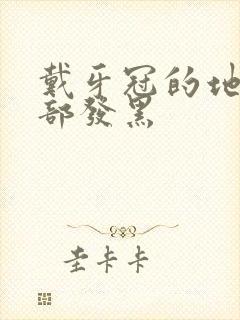 戴牙冠的地
部發黑
圭卡卡